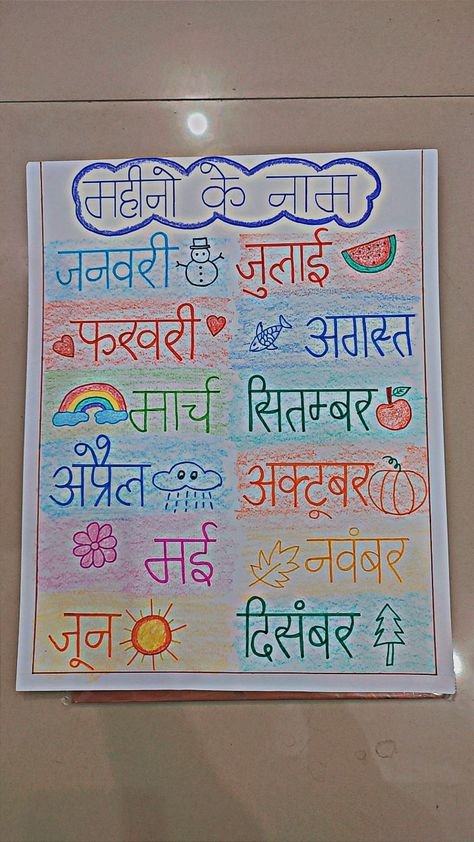 महीनो के नाम
जनवरी
फरवरी
मार्च
अप्रैल
मई
जून
जुलाई
अगस्त
सितम्बर
अक्टूबर
नवंबर
दिसंबर